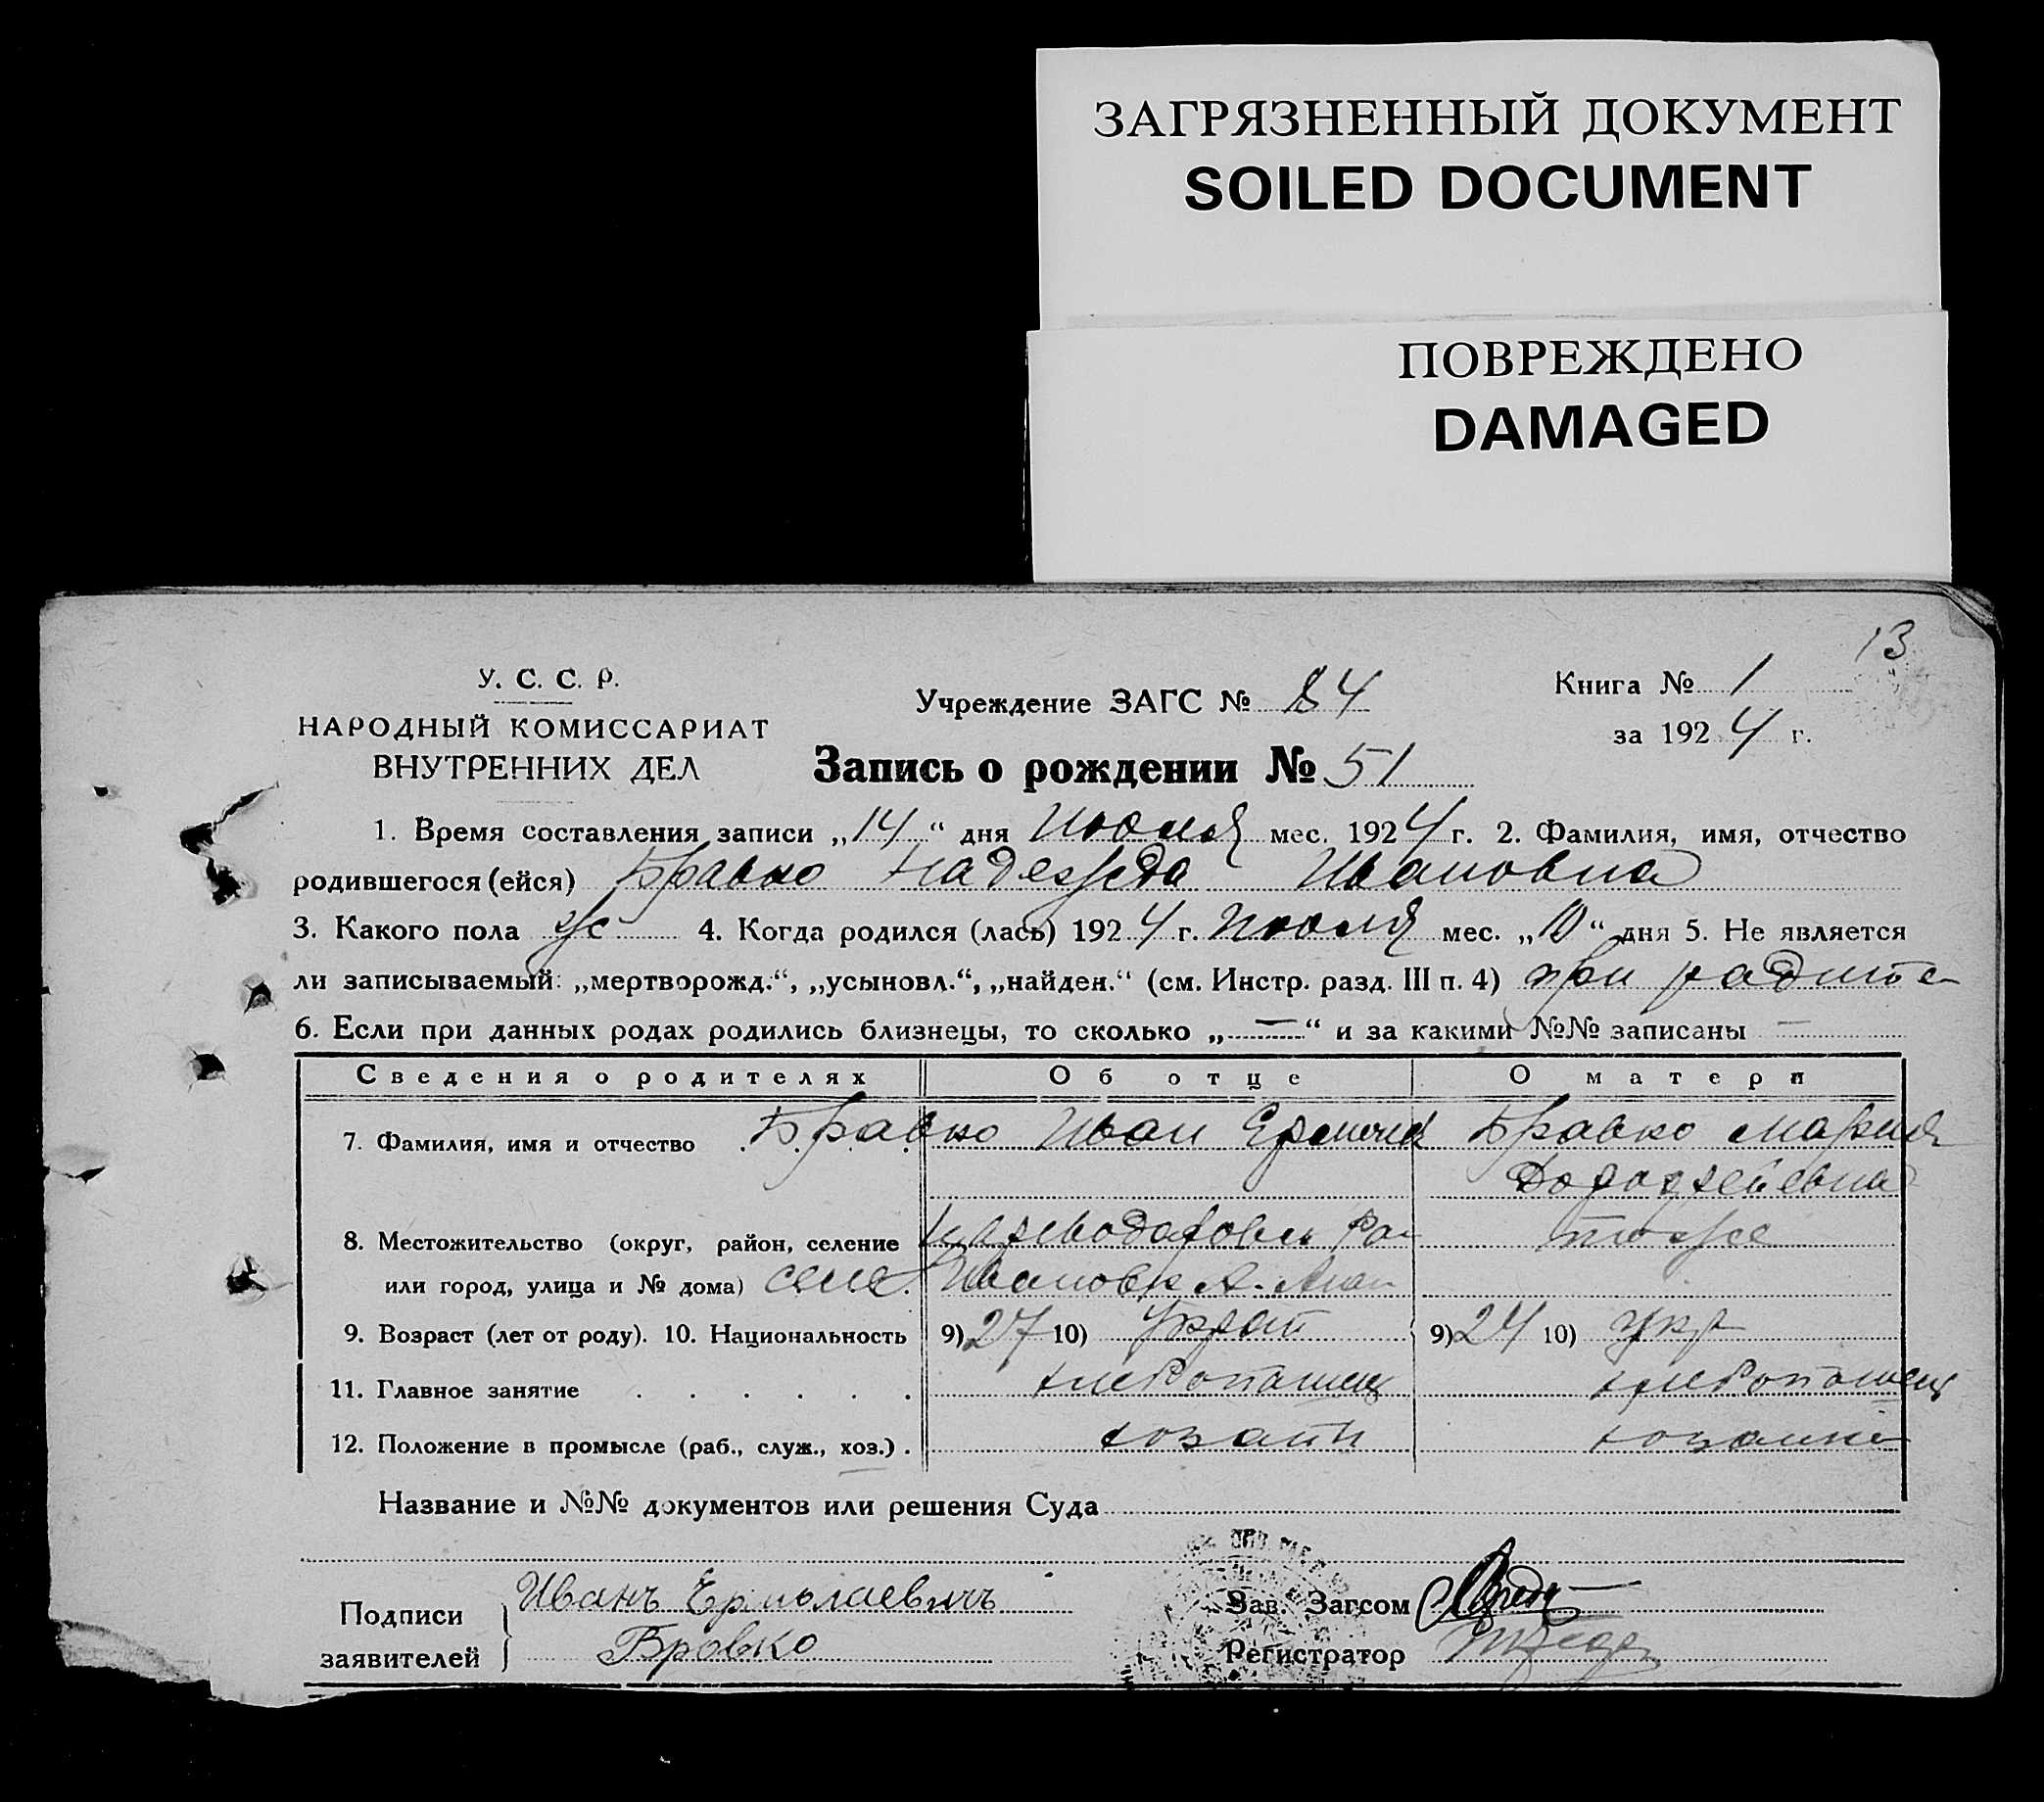 ЗАГРЯЗНЕННЫЙ ДОКУМЕНТ
SOILED DOCUMENT
ПОВРЕЖДЕНО
DAMAGED
13
У. С. С. Р.
НАРОДНЫЙ КОМИССАРИАТ
ВНУТРЕННИХ ДЕЛ
Учреждение ЗАГС № 84
Книга № 1
за 1924 г.
Запись о рождении № 51
1. Время составления записи „14“ дня Июля мес. 1924 г. 2. Фамилия, имя, отчество
родившегося (ейся) Бравко Надежда Ивановна
3. Какого пола ж 4. Когда родился (лась) 1924 г. Июля мес. „10“ дня 5. Не является
ли записываемый: „мертворожд.“, „усыновл.“, „найден.“ (см. Инстр. разд. III п. 4) при радите-
6. Если при данных родах родились близнецы, то сколько „—“ и за какими №№ записаны —
Сведения о родителях Об отце О матери
7. Фамилия, имя и отчество Бравко Иван Бравко Мария
8. Местожительство (округ, район, селение тоже
или город, улица и № дома) село
9. Возраст (лет от роду). 10. Национальность 9) 27 10) Украт 9) 24 10) укр
11. Главное занятие хлебопашец хлебопашец
12. Положение в промысле (раб., служ., хоз.)
Название и №№ документов или решения Суда
Подписи заявителей Иванъ Ермолаевичъ
Бровко
Зав. Загсом
Регистратор